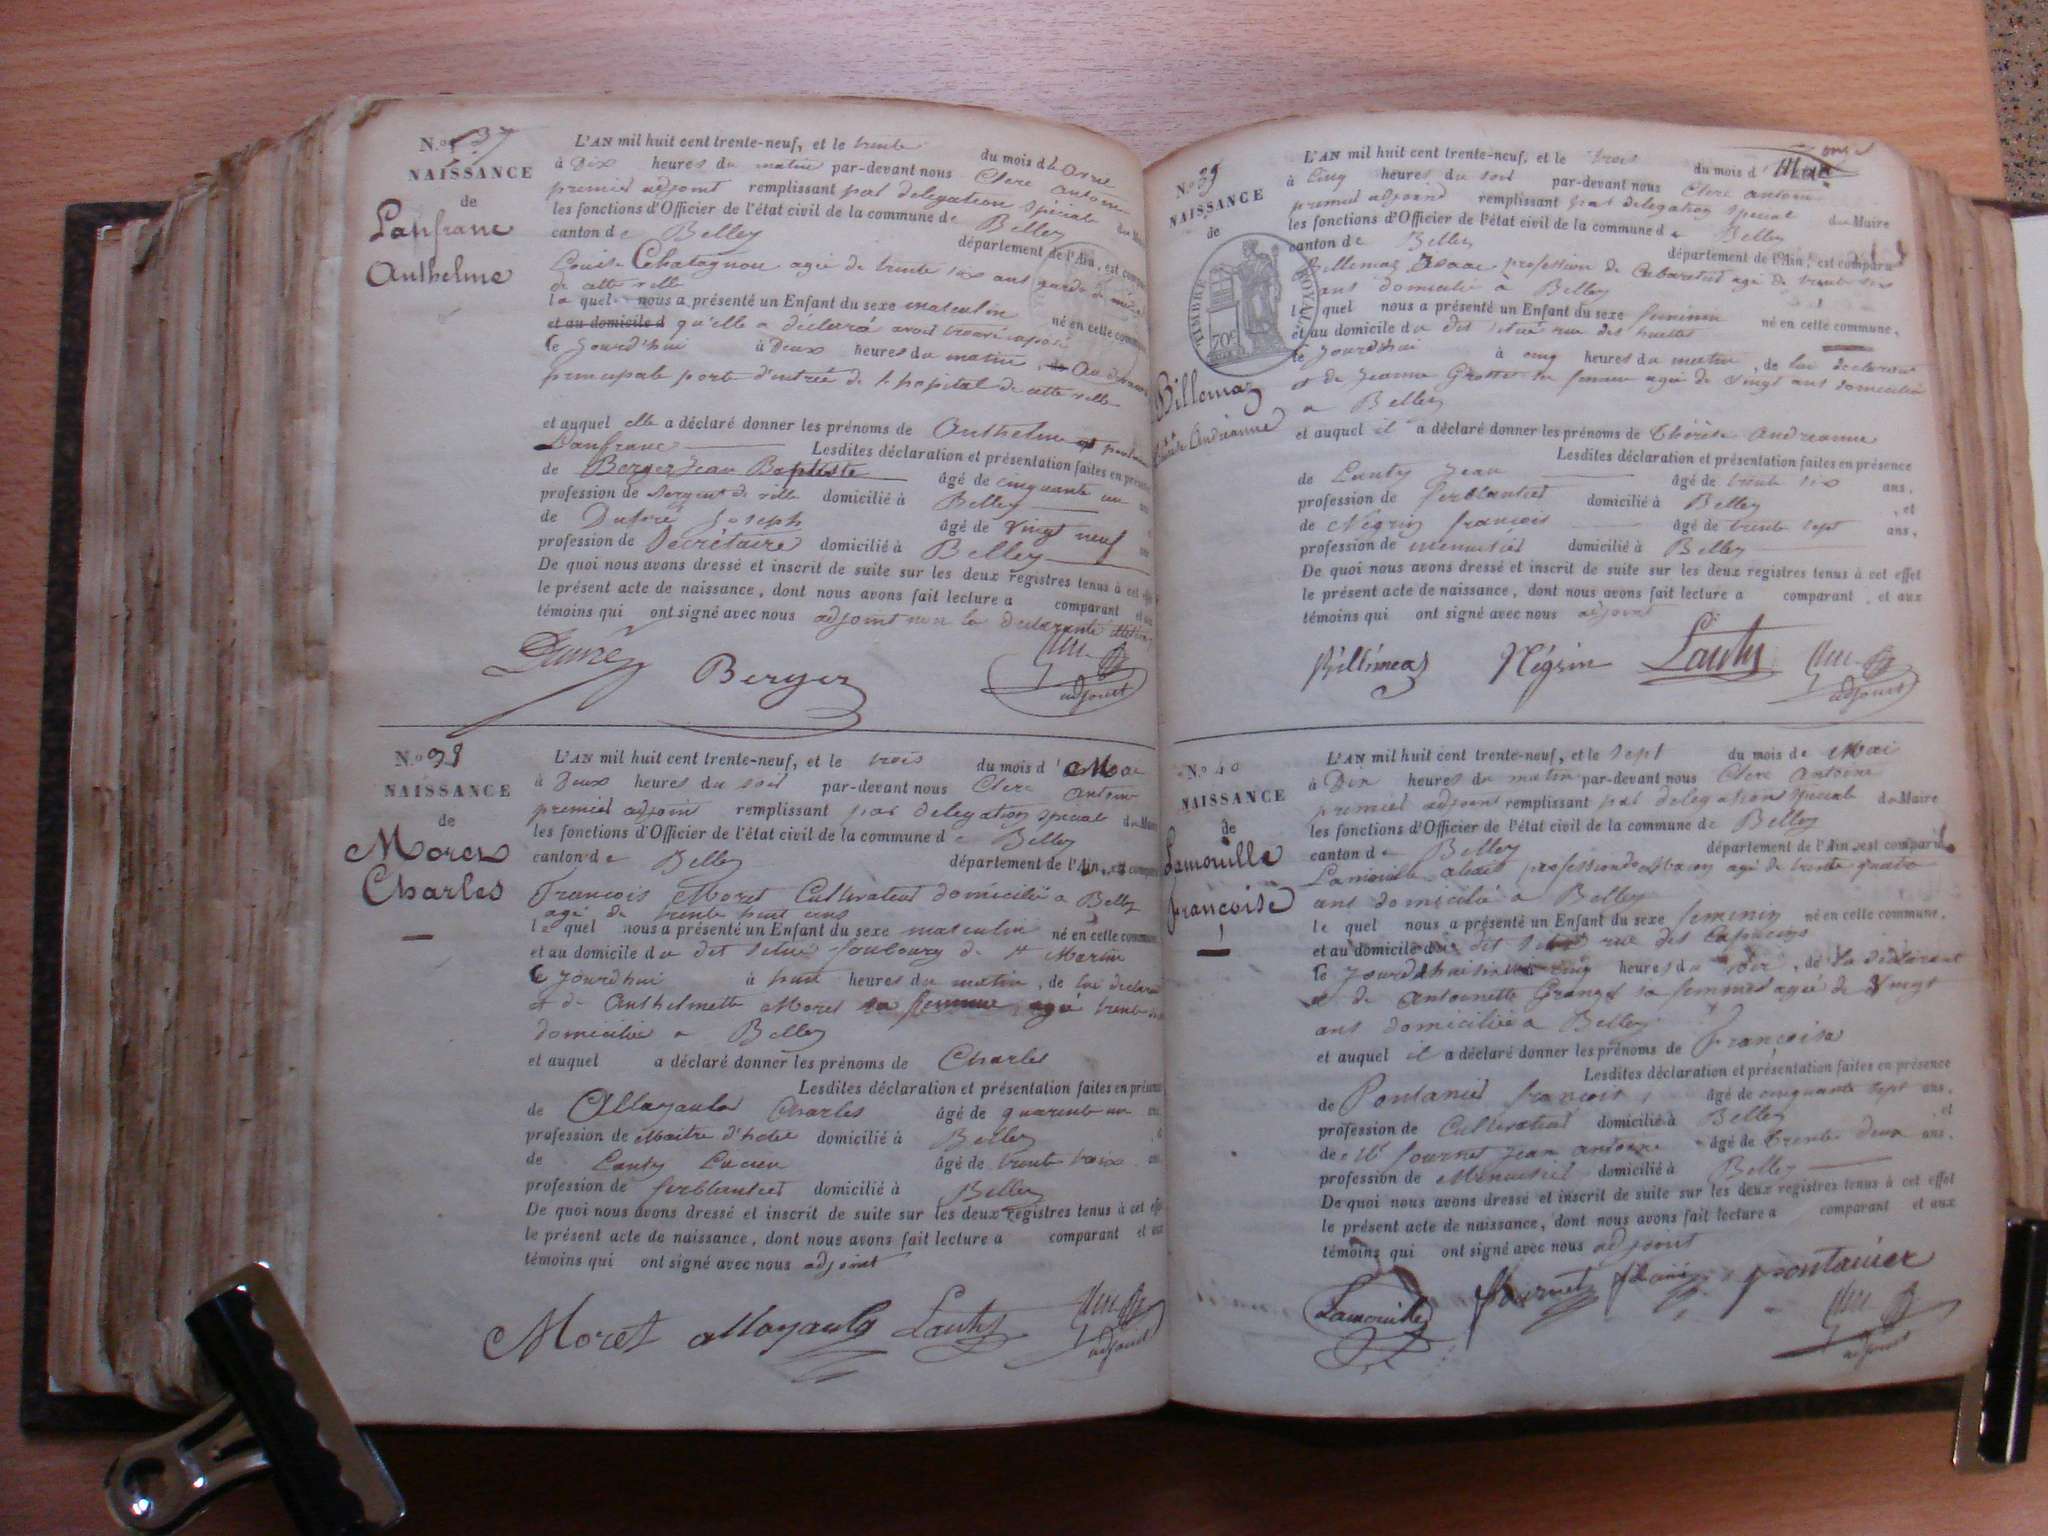 N.º 37
NAISSANCE
de
Lanfranc
Anthelme
L'AN mil huit cent trente-neuf, et le trente du mois d'avril
à Dix heures du matin par-devant nous Clerc antoine
premier adjoint remplissant par delegation spéciale du Maire
les fonctions d'Officier de l'état civil de la commune de Belley
canton de Belley département de l'Ain, est comparu
Louise Chatagnou agée de trente six ans garde de
de cette ville
la quel nous a présenté un Enfant du sexe masculin né en cette commune
et au domicile d qu'elle a déclaré avoir trouvé exposé
le jourd'hui à Deux heures du matin, Au devant
principale porte d'entrée de l'hopital de cette ville
et auquel elle a déclaré donner les prénoms de Anthelme
Lanfranc Lesdites déclaration et présentation faites en présence
de Berger Jean Baptiste âgé de cinquante un ans
profession de Sergent de ville domicilié à Belley
de Dufre Joseph âgé de vingt neuf ans
profession de Secrétaire domicilié à Belley
De quoi nous avons dressé et inscrit de suite sur les deux registres tenus à cet effet
le présent acte de naissance, dont nous avons fait lecture a comparant et aux
témoins qui ont signé avec nous adjoint non la declarante
Berger
adjoint
N.º 38
NAISSANCE
de
Moret
Charles
L'AN mil huit cent trente-neuf, et le trois du mois d Mai
à Deux heures du soir par-devant nous Clerc Antoine
premier adjoint remplissant par delegation special du Maire
les fonctions d'Officier de l'état civil de la commune de Belley
canton de Belley département de l'Ain, est comparu
Francois Moret Cultivateur domicilié a Belley
agé de trente huit ans
le quel nous a présenté un Enfant du sexe masculin né en cette commune
et au domicile du dit situé faubourg de St Martin
le jourdhui à huit heures du matin, de lui déclarant
et de Anthelmette Moret sa femme agée trente
domiciliée a Belley
et auquel a déclaré donner les prénoms de Charles
Lesdites déclaration et présentation faites en présence
de Allayaula Charles âgé de quarente un ans
profession de Maitre d'hotel domicilié à Belley
de Lanty Lucien âgé de trente troix ans
profession de ferblantier domicilié à Belley
De quoi nous avons dressé et inscrit de suite sur les deux registres tenus à cet effet
le présent acte de naissance, dont nous avons fait lecture a comparant et aux
témoins qui ont signé avec nous adjoint
Moret Lanty
adjoint
N.º 39
NAISSANCE
de
TIMBRE ROYAL
70c
Billemaz
Andréanne
L'AN mil huit cent trente-neuf, et le trois du mois d Mai
à Cinq heures du soir par-devant nous Clerc antoine
premier adjoind remplissant par delegation special du Maire
les fonctions d'Officier de l'état civil de la commune de Belley
canton de Belley département de l'Ain, est comparu
Billemaz Isaac profession de Cabaretier agé de trente six
ans domicilié a Belley
le quel nous a présenté un Enfant du sexe feminin né en cette commune,
et au domicile du dit situé rue des
le jourdhui à cinq heures du matin, de lui declarant
et de Jeanne Grosset sa femme agée de vingt ans domiciliée
a Belley
et auquel il a déclaré donner les prénoms de Thérèse Andreanne
Lesdites déclaration et présentation faites en présence
de Lanty Jean âgé de trente six ans,
profession de ferblantier domicilié à Belley, et
de Négrin francois âgé de trente sept ans,
profession de menuisier domicilié à Belley
De quoi nous avons dressé et inscrit de suite sur les deux registres tenus à cet effet
le présent acte de naissance, dont nous avons fait lecture a comparant, et aux
témoins qui ont signé avec nous adjoint
Billemaz Négrin Lanty
adjoint
N.º 40
NAISSANCE
de
Lamouille
françoise
L'AN mil huit cent trente-neuf, et le sept du mois de Mai
à Dix heures du matin par-devant nous Clerc Antoine
premier adjoint remplissant par delegation special du Maire
les fonctions d'Officier de l'état civil de la commune de Belley
canton de Belley département de l'Ain, est comparu
Lamouille alexis profession de Macon agé de trente quatre
ans domicilié a Belley
le quel nous a présenté un Enfant du sexe feminin né en cette commune,
et au domicile du dit situé rue des Capucins
le jourdhui cinq heures du soir, de la déclarant
et de Antoinette Grange sa femme agée de vingt
ans domiciliée a Belley
et auquel il a déclaré donner les prénoms de françoise
Lesdites déclaration et présentation faites en présence
de Pontanier françois, âgé de cinquante sept ans,
profession de Cultivateur domicilié à Belley, et
de fournet Jean antoine âgé de trente deux ans,
profession de Menuisier domicilié à Belley
De quoi nous avons dressé et inscrit de suite sur les deux registres tenus à cet effet
le présent acte de naissance, dont nous avons fait lecture a comparant et aux
témoins qui ont signé avec nous adjoint
Lamouille fournet pontanier
adjoint